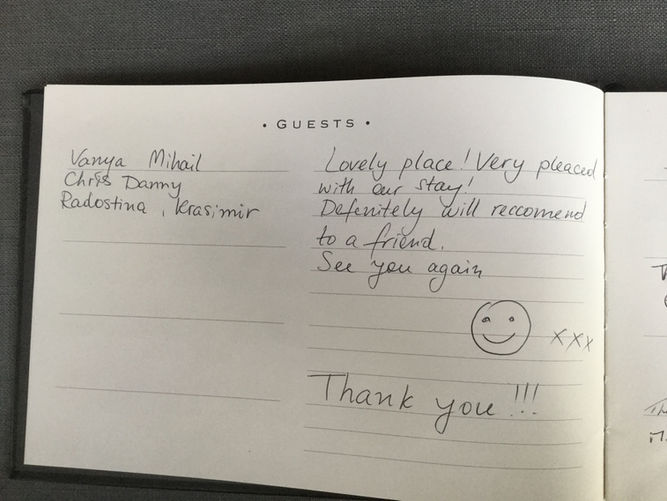 • GUESTS •
Vanya Mihail
Chris Danny
Radostina, Krasimir
Lovely place! Very pleaced
with our stay!
Defenitely will reccomend
to a friend.
See you again
xxx
Thank you!!!